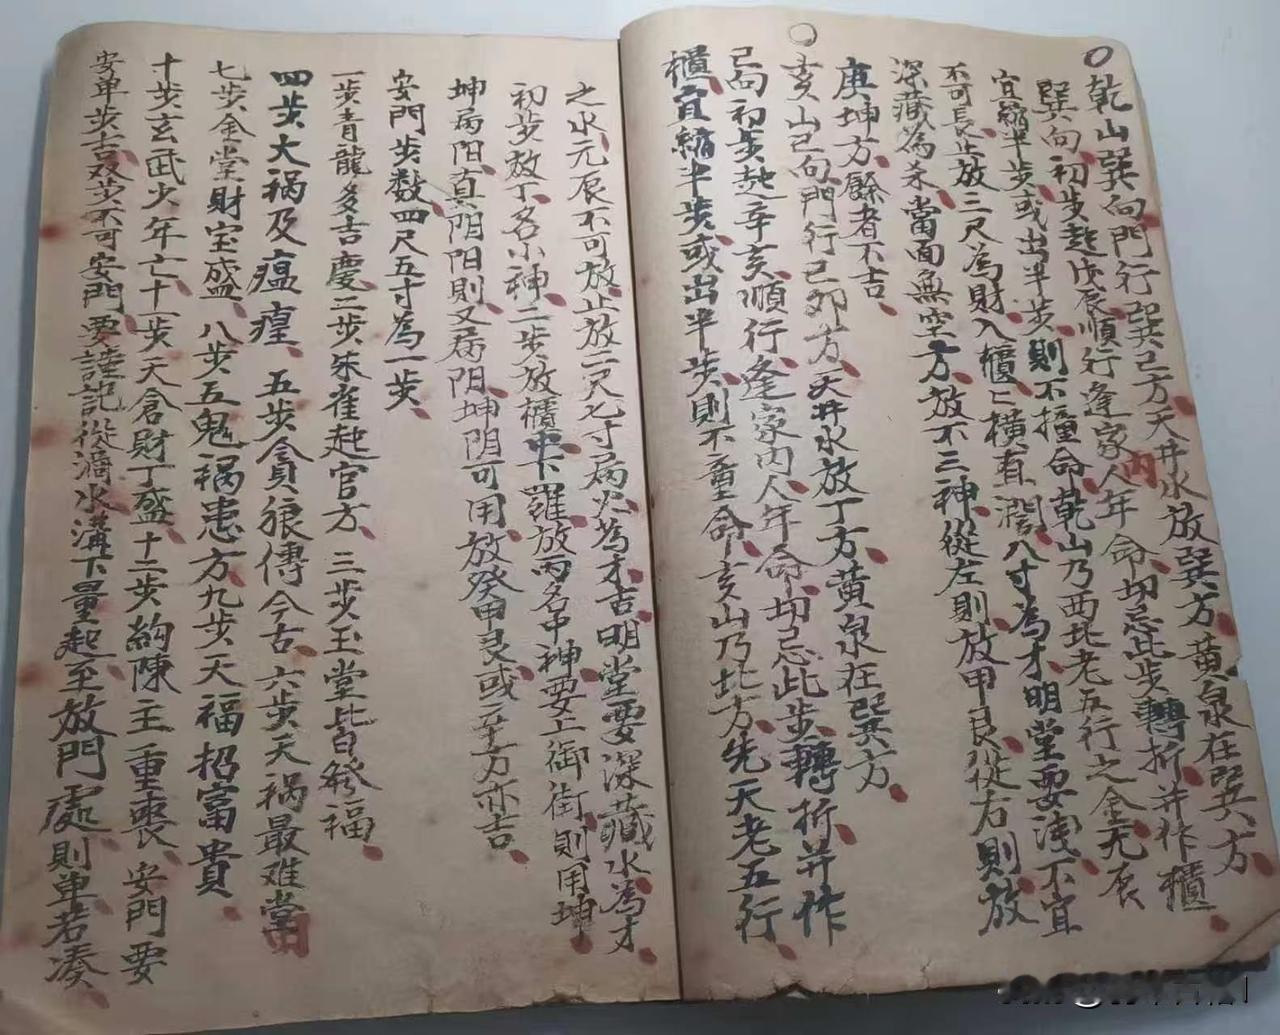 乾山巽向門行巽巳方天井水放巽方黃泉在巽方
巽向初步起戊辰順行逢家内人年命切忌此步轉折并作櫃
宜縮半步或出半步則不撞命乾山乃西北老五行之金元辰
不可長止放三尺為財入櫃亡橫直濶八寸為才明堂要淺不宜
深藏為米當面無空方放不三神從左則放甲艮從右則放
庚坤方餘者不吉
亥山巳向門行巳夘方天井水放丁方黃泉在巽方
巳向初步起辛亥順行逢家內人年命切忌此步轉折并作
櫃宜縮半步或出半步則不重命亥山乃北方先天老五行
之水元辰不可放止放二尺七寸病火為才吉明堂要深藏水為才
初步放丁名小神二步放櫃中下羅放丙名中神要上御街則用坤
坤病阳真阴阳則又病阴坤阴可用放癸甲艮或辛方亦吉
安門步数四尺五寸為一步
一步青龍多吉慶二步朱雀起官方三步玉堂皆發福
四步大禍及瘟瘟五步貪狼傳今古六步天禍最难當
七步金堂財宝盛八步五鬼禍患方九步天福招富貴
十步玄武少年亡十一步天倉財丁盛十二步絇陳主重喪安門要
安单步吉双步不可安門要謹記從滴水溝下量起至放門處則单若湊